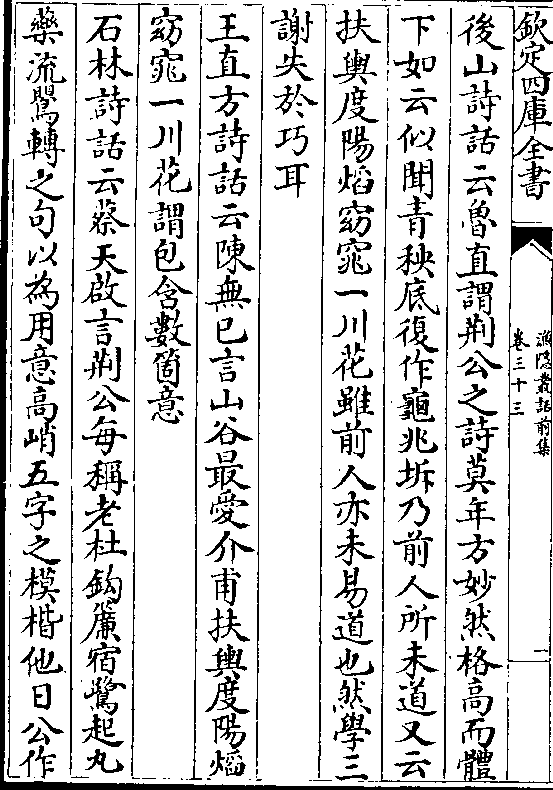 欽定四庫全書
漁隱叢話前集
卷三十三
一
後山詩話云魯直謂荆公之詩莫年方妙然格高而體
下如云似聞青秧底復作龜兆坼乃前人所未道又云
扶輿度陽焰窈窕一川花雖前人亦未易道也然學三
謝失於巧耳
王直方詩話云陳無已言山谷最愛介甫扶輿度陽熖
窈窕一川花謂包含數箇意
石林詩話云蔡天啟言荆公每稱老杜鈎簾宿鷺起丸
藥流鶯轉之句以為用意高峭五字之模楷他日公作